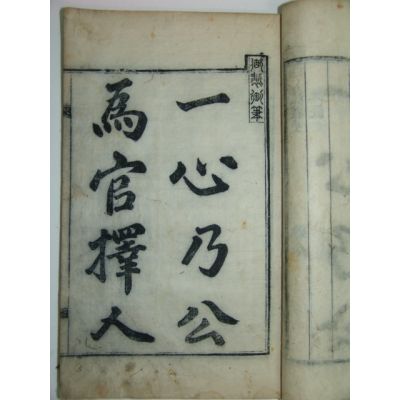 御製御筆
一心乃公
爲官擇人